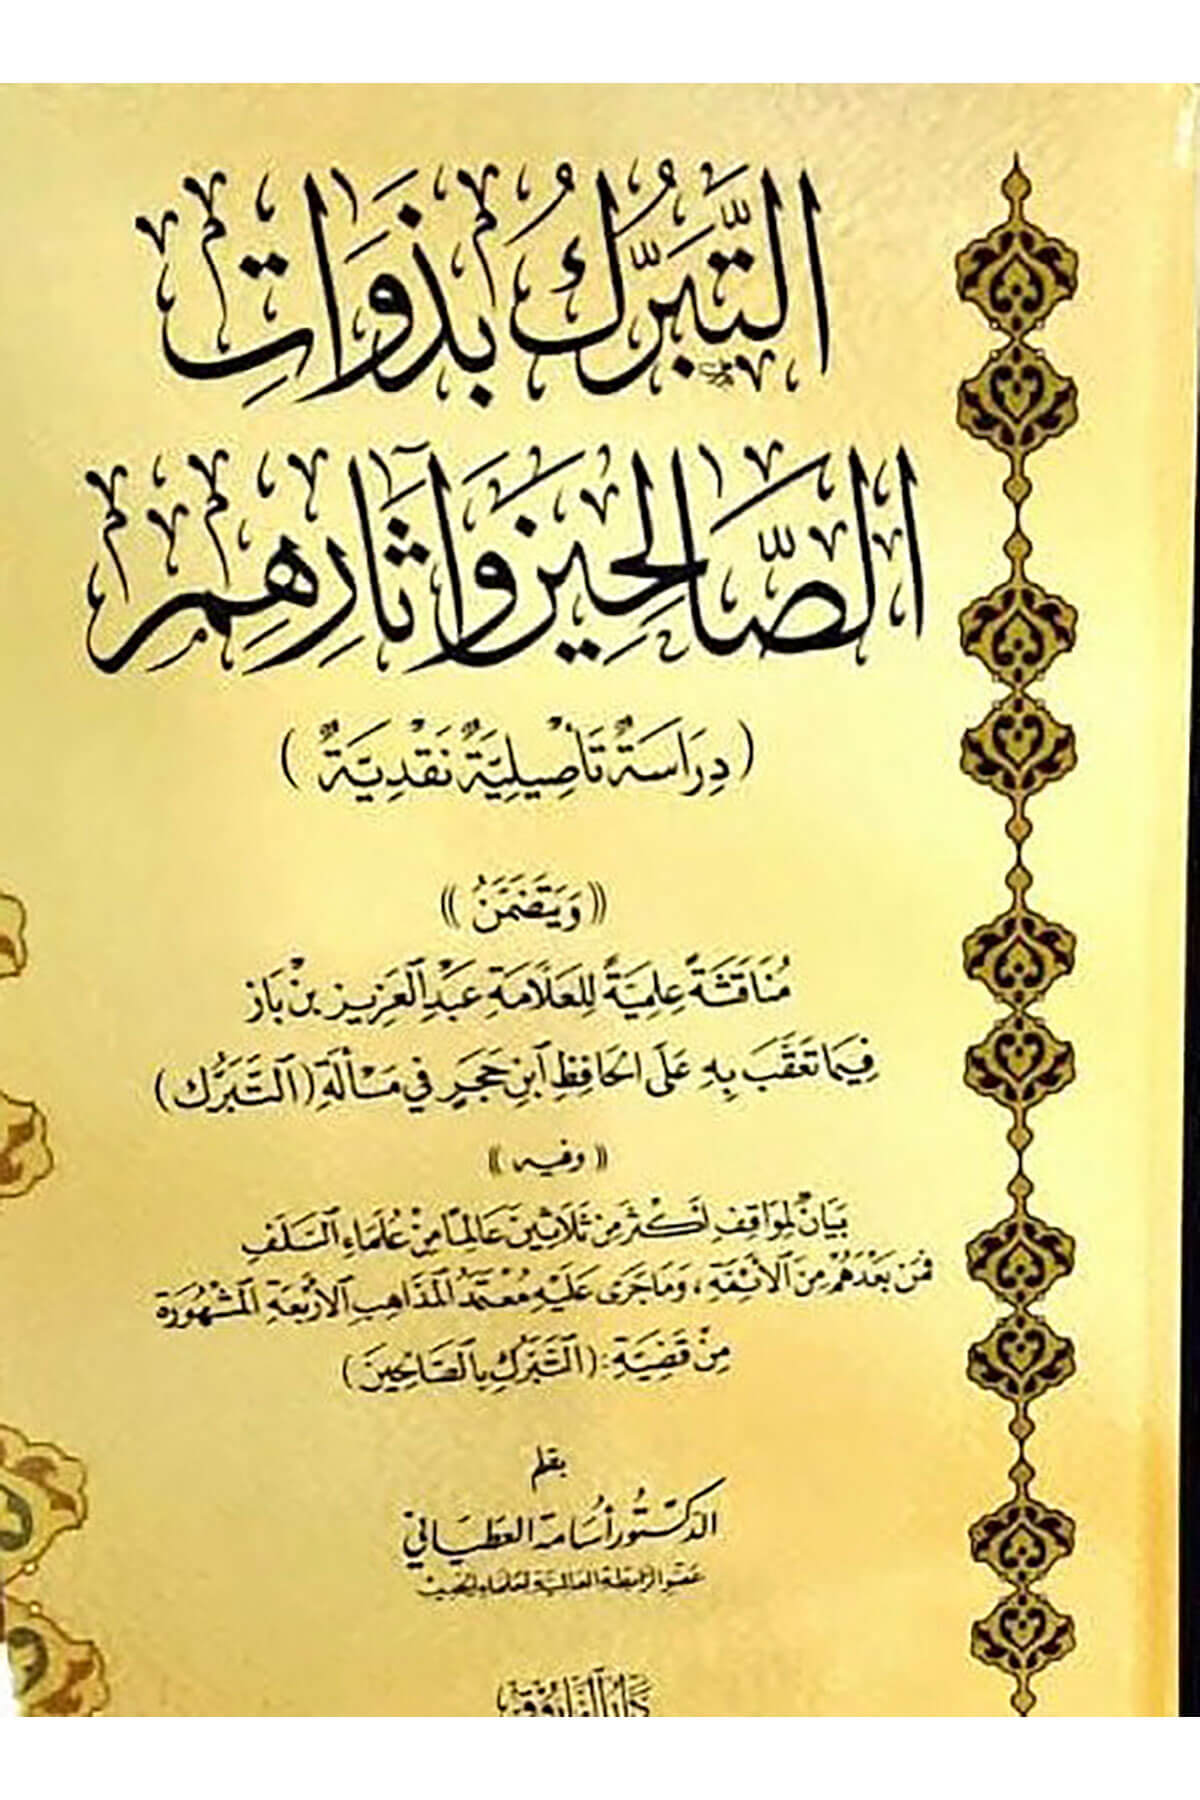 التَّبَرُّكُ بِذَوَاتِ
الصَّالِحِينَ وَآثَارِهِم
(دِرَاسَةٌ تَأْصِيلِيَّةٌ نَقْدِيَّةٌ)
((وَيَتَضَمَّنُ))
مُنَاقَشَةً عِلمِيَّةً لِلعَلَّامَةِ عَبْدِ العَزِيزِ بنِ بَاز
فِيمَا تَعَقَّبَ بِهِ عَلَى الحَافِظِ ابْنِ حَجَرٍ فِي مَسْأَلَةِ (التَّبَرُّك)
((وفيه))
بَيَانٌ لِمَوَاقِفِ أَكْثَرَ مِنْ ثَلَاثِينَ عَالِمًا مِنْ عُلَمَاءِ السَّلَفِ
فَمَنْ بَعْدَهُمْ مِنَ الأَئِمَّةِ، وَمَا جَرَى عَلَيْهِ مُعْتَمَدُ المَذَاهِبِ الأَرْبَعَةِ المَشْهُورَةِ
مِنْ قَضِيَّةِ: (التَّبَرُّكِ بِالصَّالِحِينَ)
بقلم
الدكتور أسامة العطياني
عضو الرابطة العالمية لعلماء
دَارُ الفَارُوق